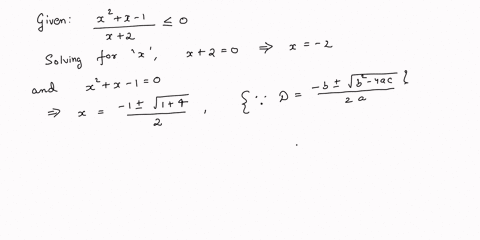 Given: \frac{x^2+x-1}{x+2} ≤ 0
Solving for 'x', x+2=0 ⇒ x=-2
and x^2+x-1=0
⇒ x = \frac{-1±\sqrt{1+4}}{2}, {∵ D = \frac{-b±\sqrt{b^2-4ac}}{2a}}